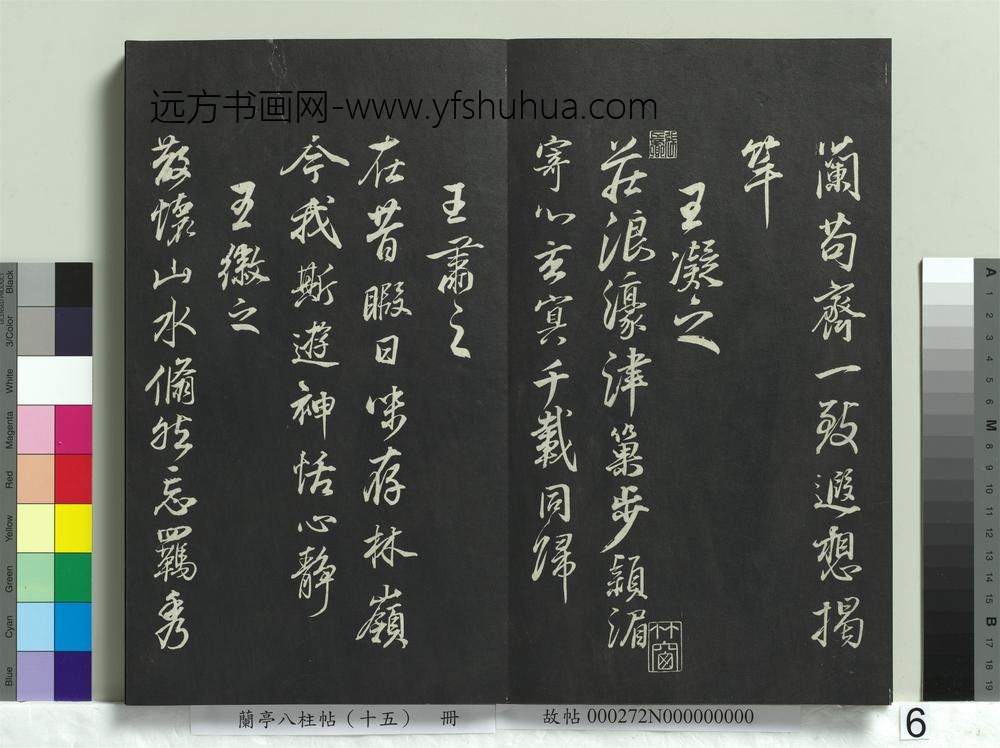 远方书画网-www.yfshuhua.com
蘭苟齊一致遐想揭
竿
王凝之
莊浪濠津巢步潁湄
寄心玄冥千載同歸
王肅之
在昔暇日味存林嶺
今我斯遊神恬心静
王徽之
散懷山水翛然忘羈秀
竹窗
蘭亭八柱帖（十五） 冊
故帖 000272N000000000
6
Black
3/Color
White
Magenta
Red
Yellow
Green
Cyan
Blue
A
1
2
3
4
5
6
M
8
9
10
11
12
13
14
15
B
17
18
19